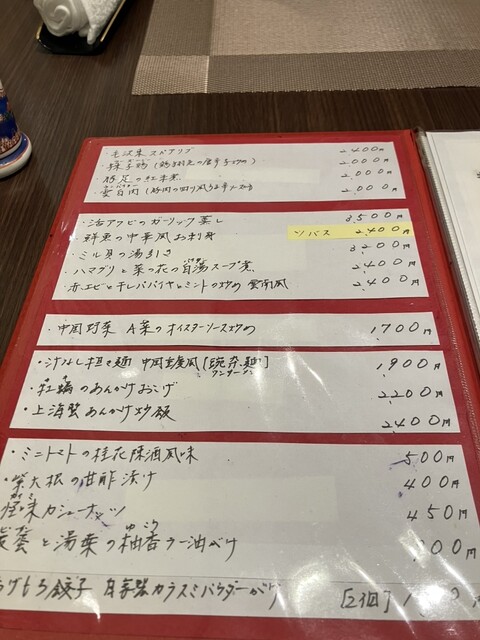 ・毛沢東スペアリブ 2,400円
・辣子鶏(鶏 の唐辛子炒め) 2,000円
・豚足の紅 煮 2,000円
・雲白肉(豚肉の ) 2,000円
・活アワビのガーリック蒸し 3,500円
・鮮魚の中華風お刺身 ソバス 2,400円
・ミル貝の湯引き 3,200円
・ハマグリと菜の花の白湯スープ煮 2,400円
・赤エビと干しパパイヤとミントの炒め 雲南風 2,400円
・中国野菜 A菜のオイスターソース炒め 1,700円
・汁なし担々麺 中国重慶風[豌夯麺]ワンザーメン 1,900円
・牡蠣のあんかけおこげ 2,200円
・上海蟹あんかけ炒飯 2,400円
・ミニトマトの桂花陳酒風味 500円
・紫大根の甘酢漬け 400円
怪味カシューナッツ 450円
蛋と湯葉の柚香ラー油がけ 00円
げもち餃子 自家製カラスミパウダーがけ [2個] 円